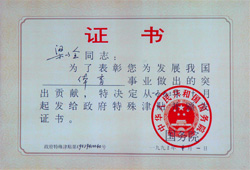 证书
梁 全 同志:
为了表彰您为发展我国
体育 事业做出的突
出贡献,特决定从 月
起发给政府特殊津
证书。
中华人民共和国国务院
国务院
政府特殊津贴第 号
一九九 年 月一日